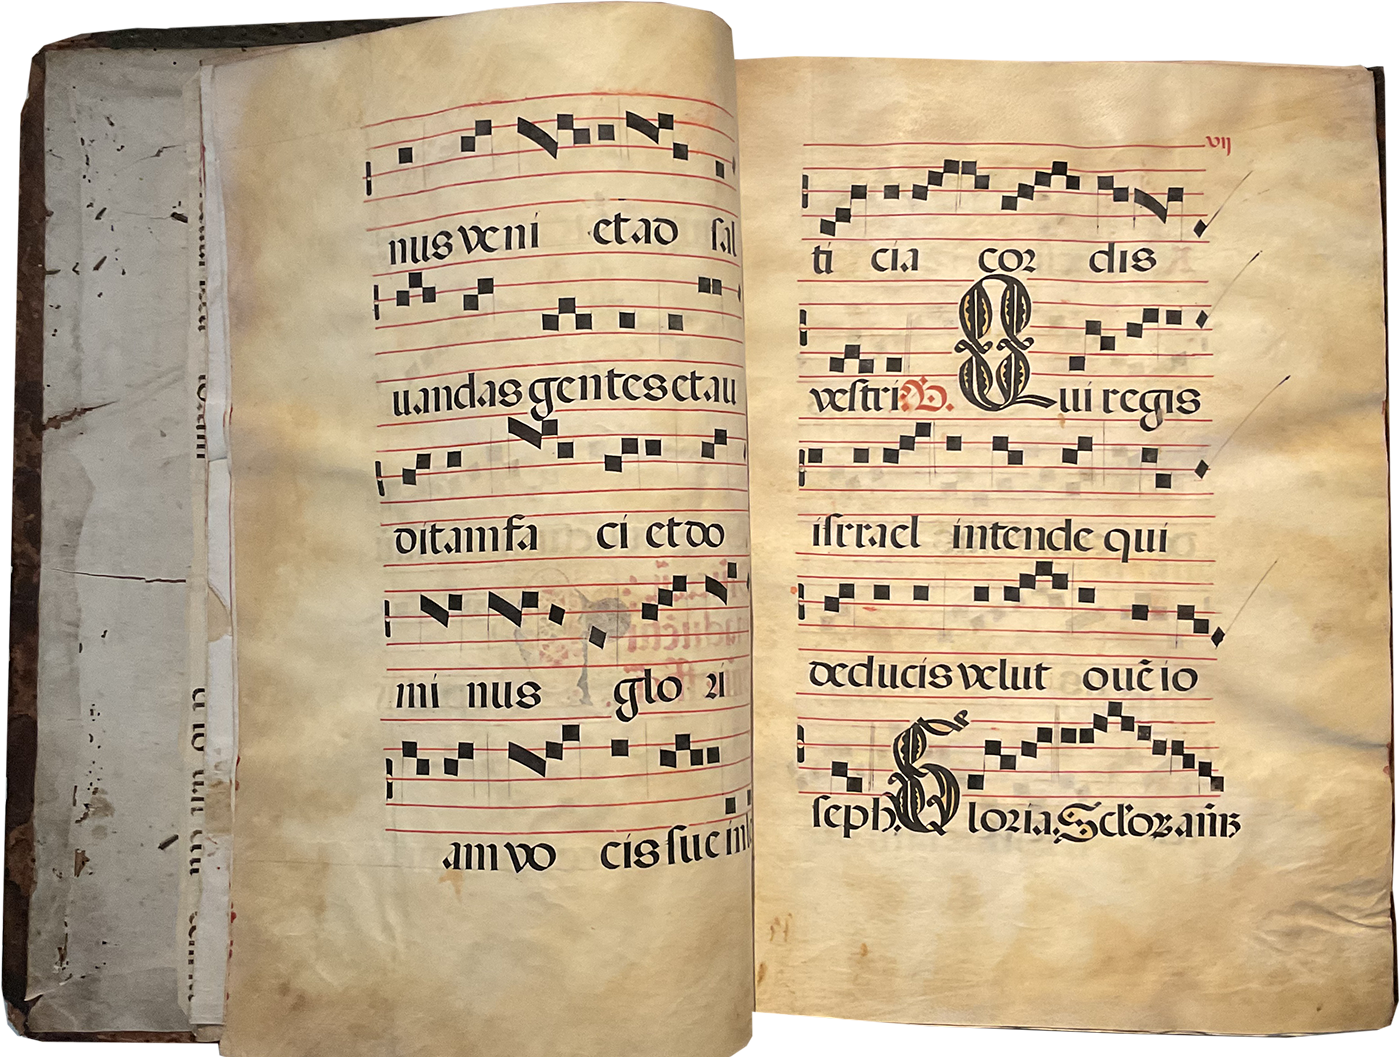 nus veni et ad sal
uandas gentes et au
ditam fa ci et do
mi nus glo ri
am vo cis sue in
vij
ti cia cor dis
vestri V. Qui regis
isrrael intende qui
deducis velut ouē io
seph. Gloria. Sclōram